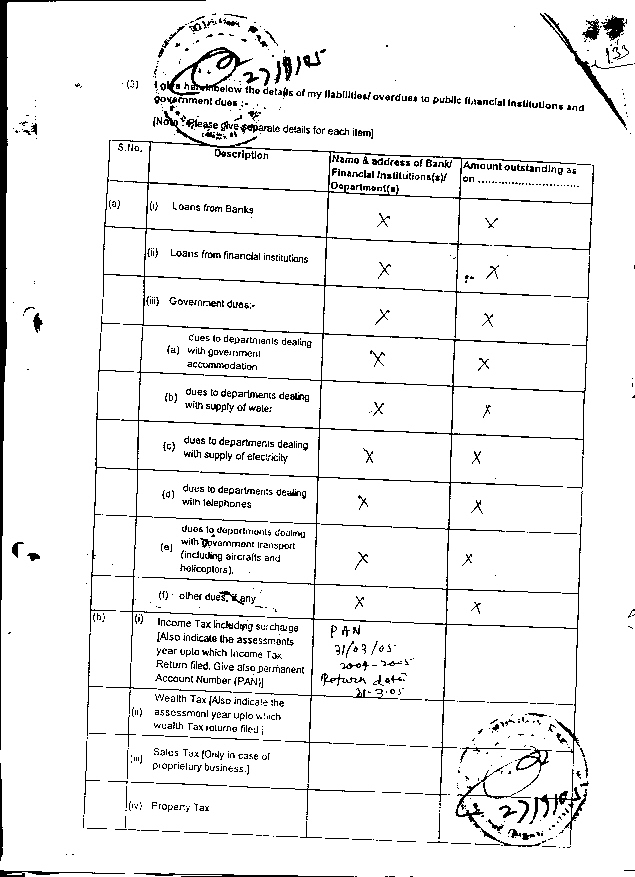 133
27/9/05
(3) I give hereinbelow the details of my liabilities/ overdues to public financial institutions and
government dues :-
[Note : Please give separate details for each item]
S.No. Description Name & address of Bank/ Financial Institutions(s)/ Department(s) Amount outstanding as on ............................
(a) (i) Loans from Banks X X
(ii) Loans from financial institutions X X
(iii) Government dues:- X X
(a) dues to departments dealing with government accommodation X X
(b) dues to departments dealing with supply of water X X
(c) dues to departments dealing with supply of electricity X X
(d) dues to departments dealing with telephones X X
(e) dues to departments dealing with government transport (including aircrafts and helicopters). X X
(f) other dues, if any X X
(b) (i) Income Tax including surcharge
[Also indicate the assessments
year upto which Income Tax
Return filed. Give also permanent
Account Number (PAN)]
PAN
31/03/05
2004-2005
Return date
31-3-05
(ii) Wealth Tax [Also indicate the
assessment year upto which
wealth Tax returne filed.]
(iii) Sales Tax [Only in case of
proprietary business.]
(iv) Property Tax
27/9/05